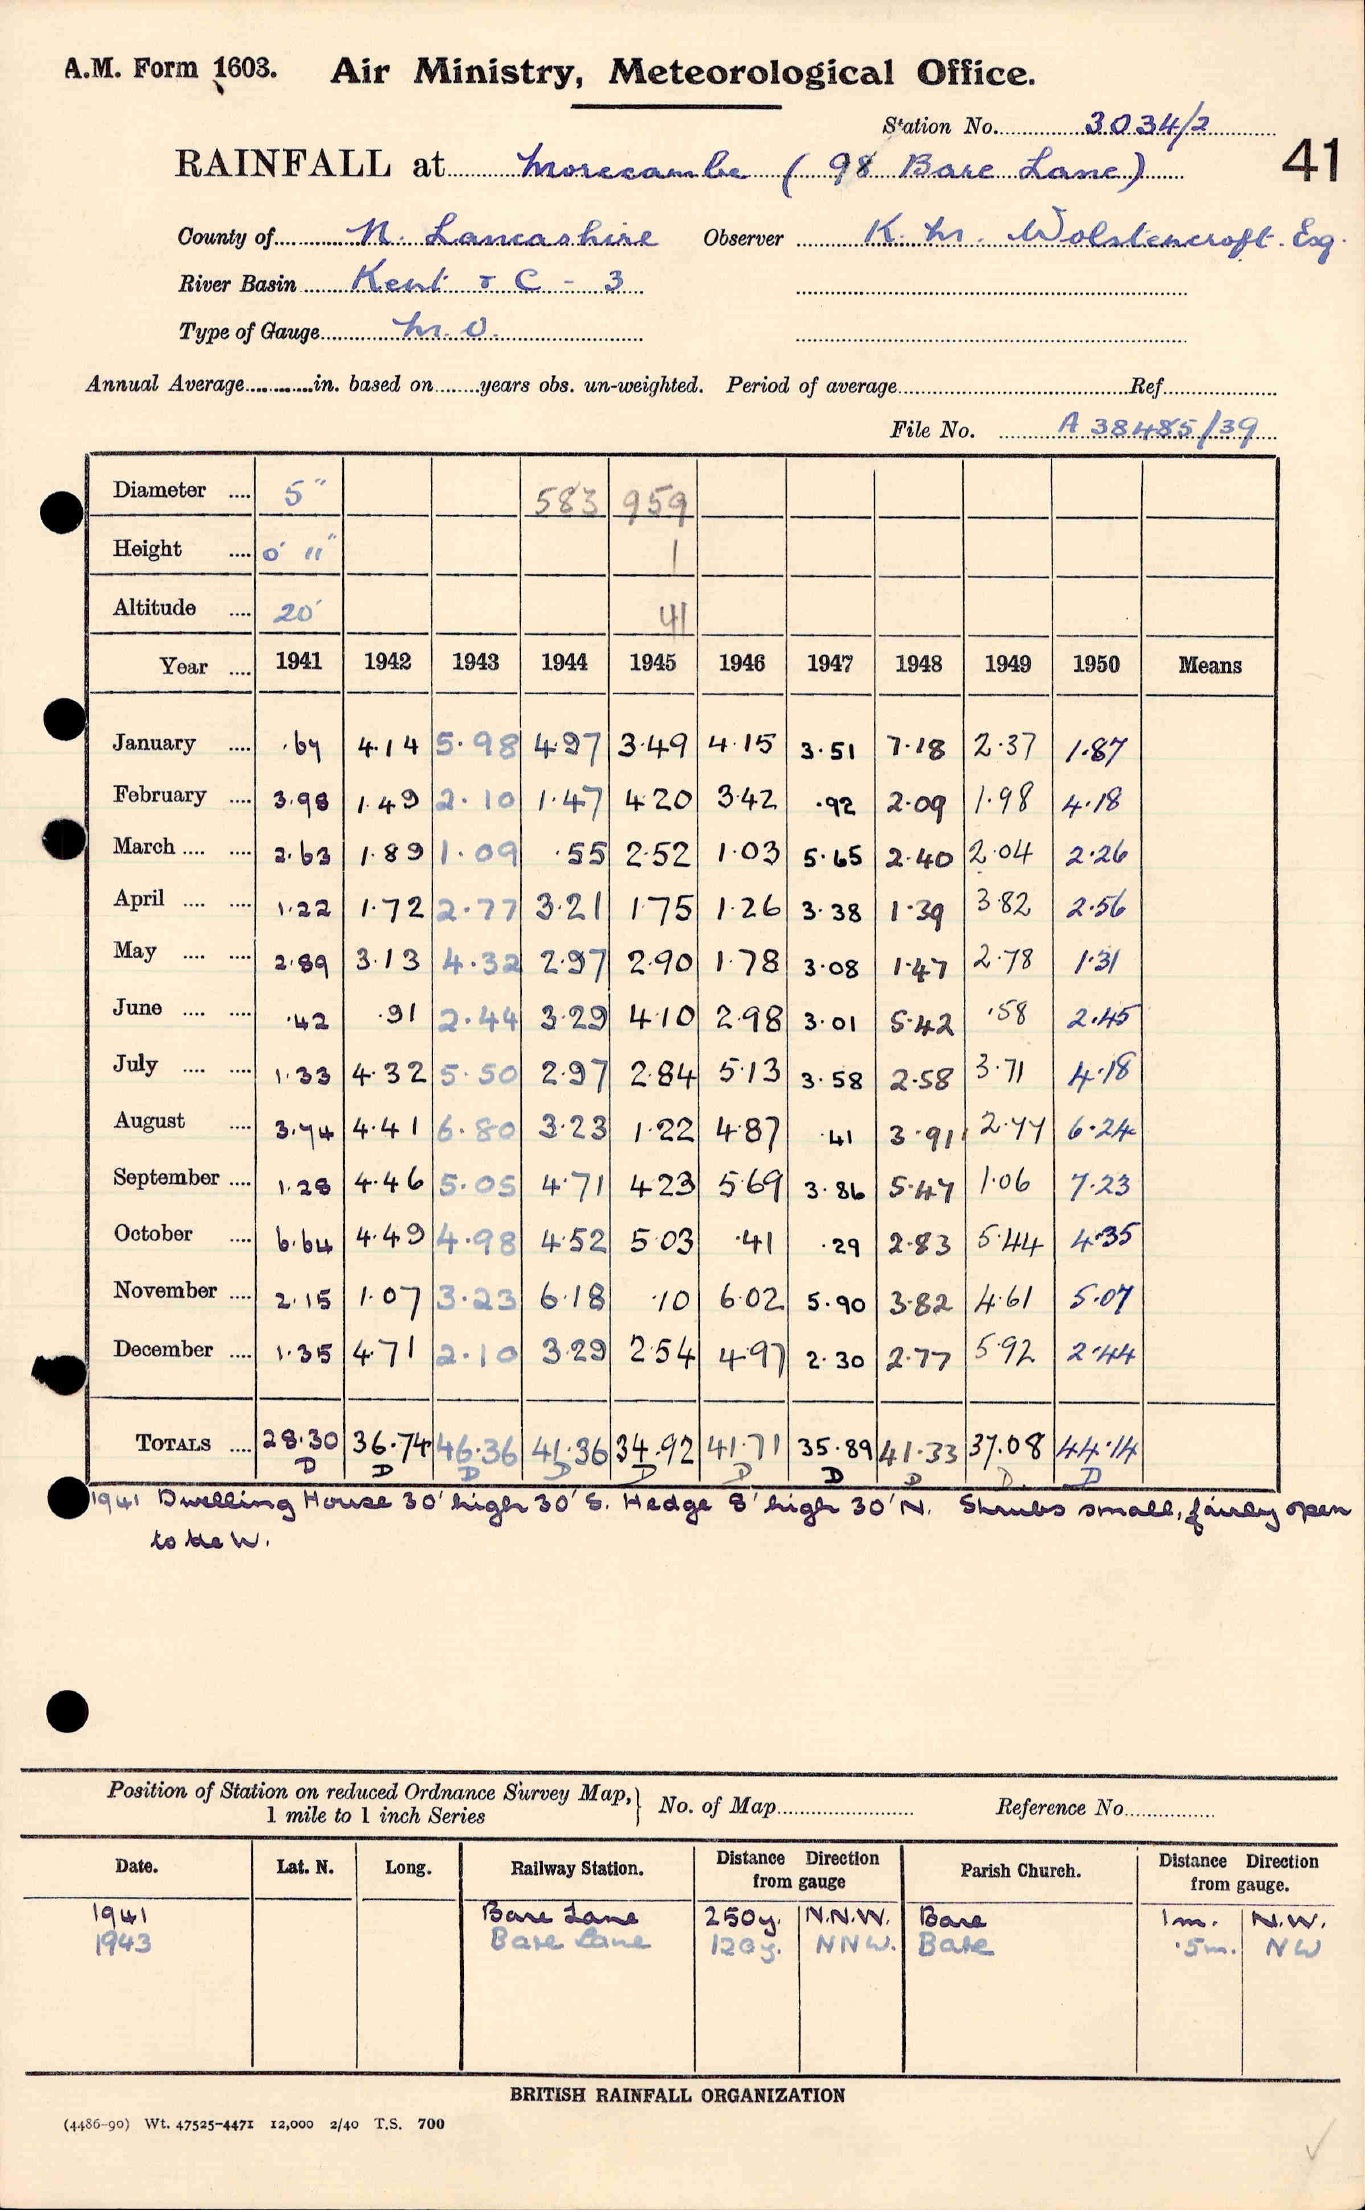 A.M. Form 1603. Air Ministry, Meteorological Office.
Station No. 3034/2
RAINFALL at Morecambe (98 Bare Lane) 41
County of N. Lancashire Observer K. M. Wolstencroft. Esq.
River Basin Kent & C - 3
Type of Gauge M.O.
Annual Average in. based on years obs. un-weighted. Period of average Ref
File No. A 38485/39
Diameter 5" 583 959
Height 0' 11" 1
Altitude 20' 41
Year 1941 1942 1943 1944 1945 1946 1947 1948 1949 1950 Means
January .67 4.14 5.98 4.97 3.49 4.15 3.51 7.18 2.37 1.87
February 3.98 1.49 2.10 1.47 4.20 3.42 .92 2.09 1.98 4.18
March 2.63 1.89 1.09 .55 2.52 1.03 5.65 2.40 2.04 2.26
April 1.22 1.72 2.77 3.21 1.75 1.26 3.38 1.39 3.82 2.56
May 2.89 3.13 4.32 2.97 2.90 1.78 3.08 1.47 2.78 1.31
June .42 .91 2.44 3.29 4.10 2.98 3.01 5.42 .58 2.45
July 1.33 4.32 5.50 2.97 2.84 5.13 3.58 2.58 3.71 4.18
August 3.74 4.41 6.80 3.23 1.22 4.87 .41 3.91 2.77 6.24
September 1.28 4.46 5.05 4.71 4.23 5.69 3.86 5.47 1.06 7.23
October 6.64 4.49 4.98 4.52 5.03 .41 .29 2.83 5.44 4.35
November 2.15 1.07 3.23 6.18 .10 6.02 5.90 3.82 4.61 5.07
December 1.35 4.71 2.10 3.29 2.54 4.97 2.30 2.77 5.92 2.44
TOTALS 28.30 36.74 46.36 41.36 34.92 41.71 35.89 41.33 37.08 44.14
D D D D D D D D D D
1941 Dwelling House 30' high 30' S. Hedge 8' high 30' N. Shrubs small, fairly open
to the W.
Position of Station on reduced Ordnance Survey Map, } No. of Map Reference No
1 mile to 1 inch Series
Date. Lat. N. Long. Railway Station. Distance Direction from gauge Parish Church. Distance Direction from gauge.
1941 Bare Lane 250y. N.N.W. Bare 1m. N.W.
1943 Bare Lane 120y. NNW. Bare .5m. NW
BRITISH RAINFALL ORGANIZATION
(4486-90) Wt. 47525-4471 12,000 2/40 T.S. 700